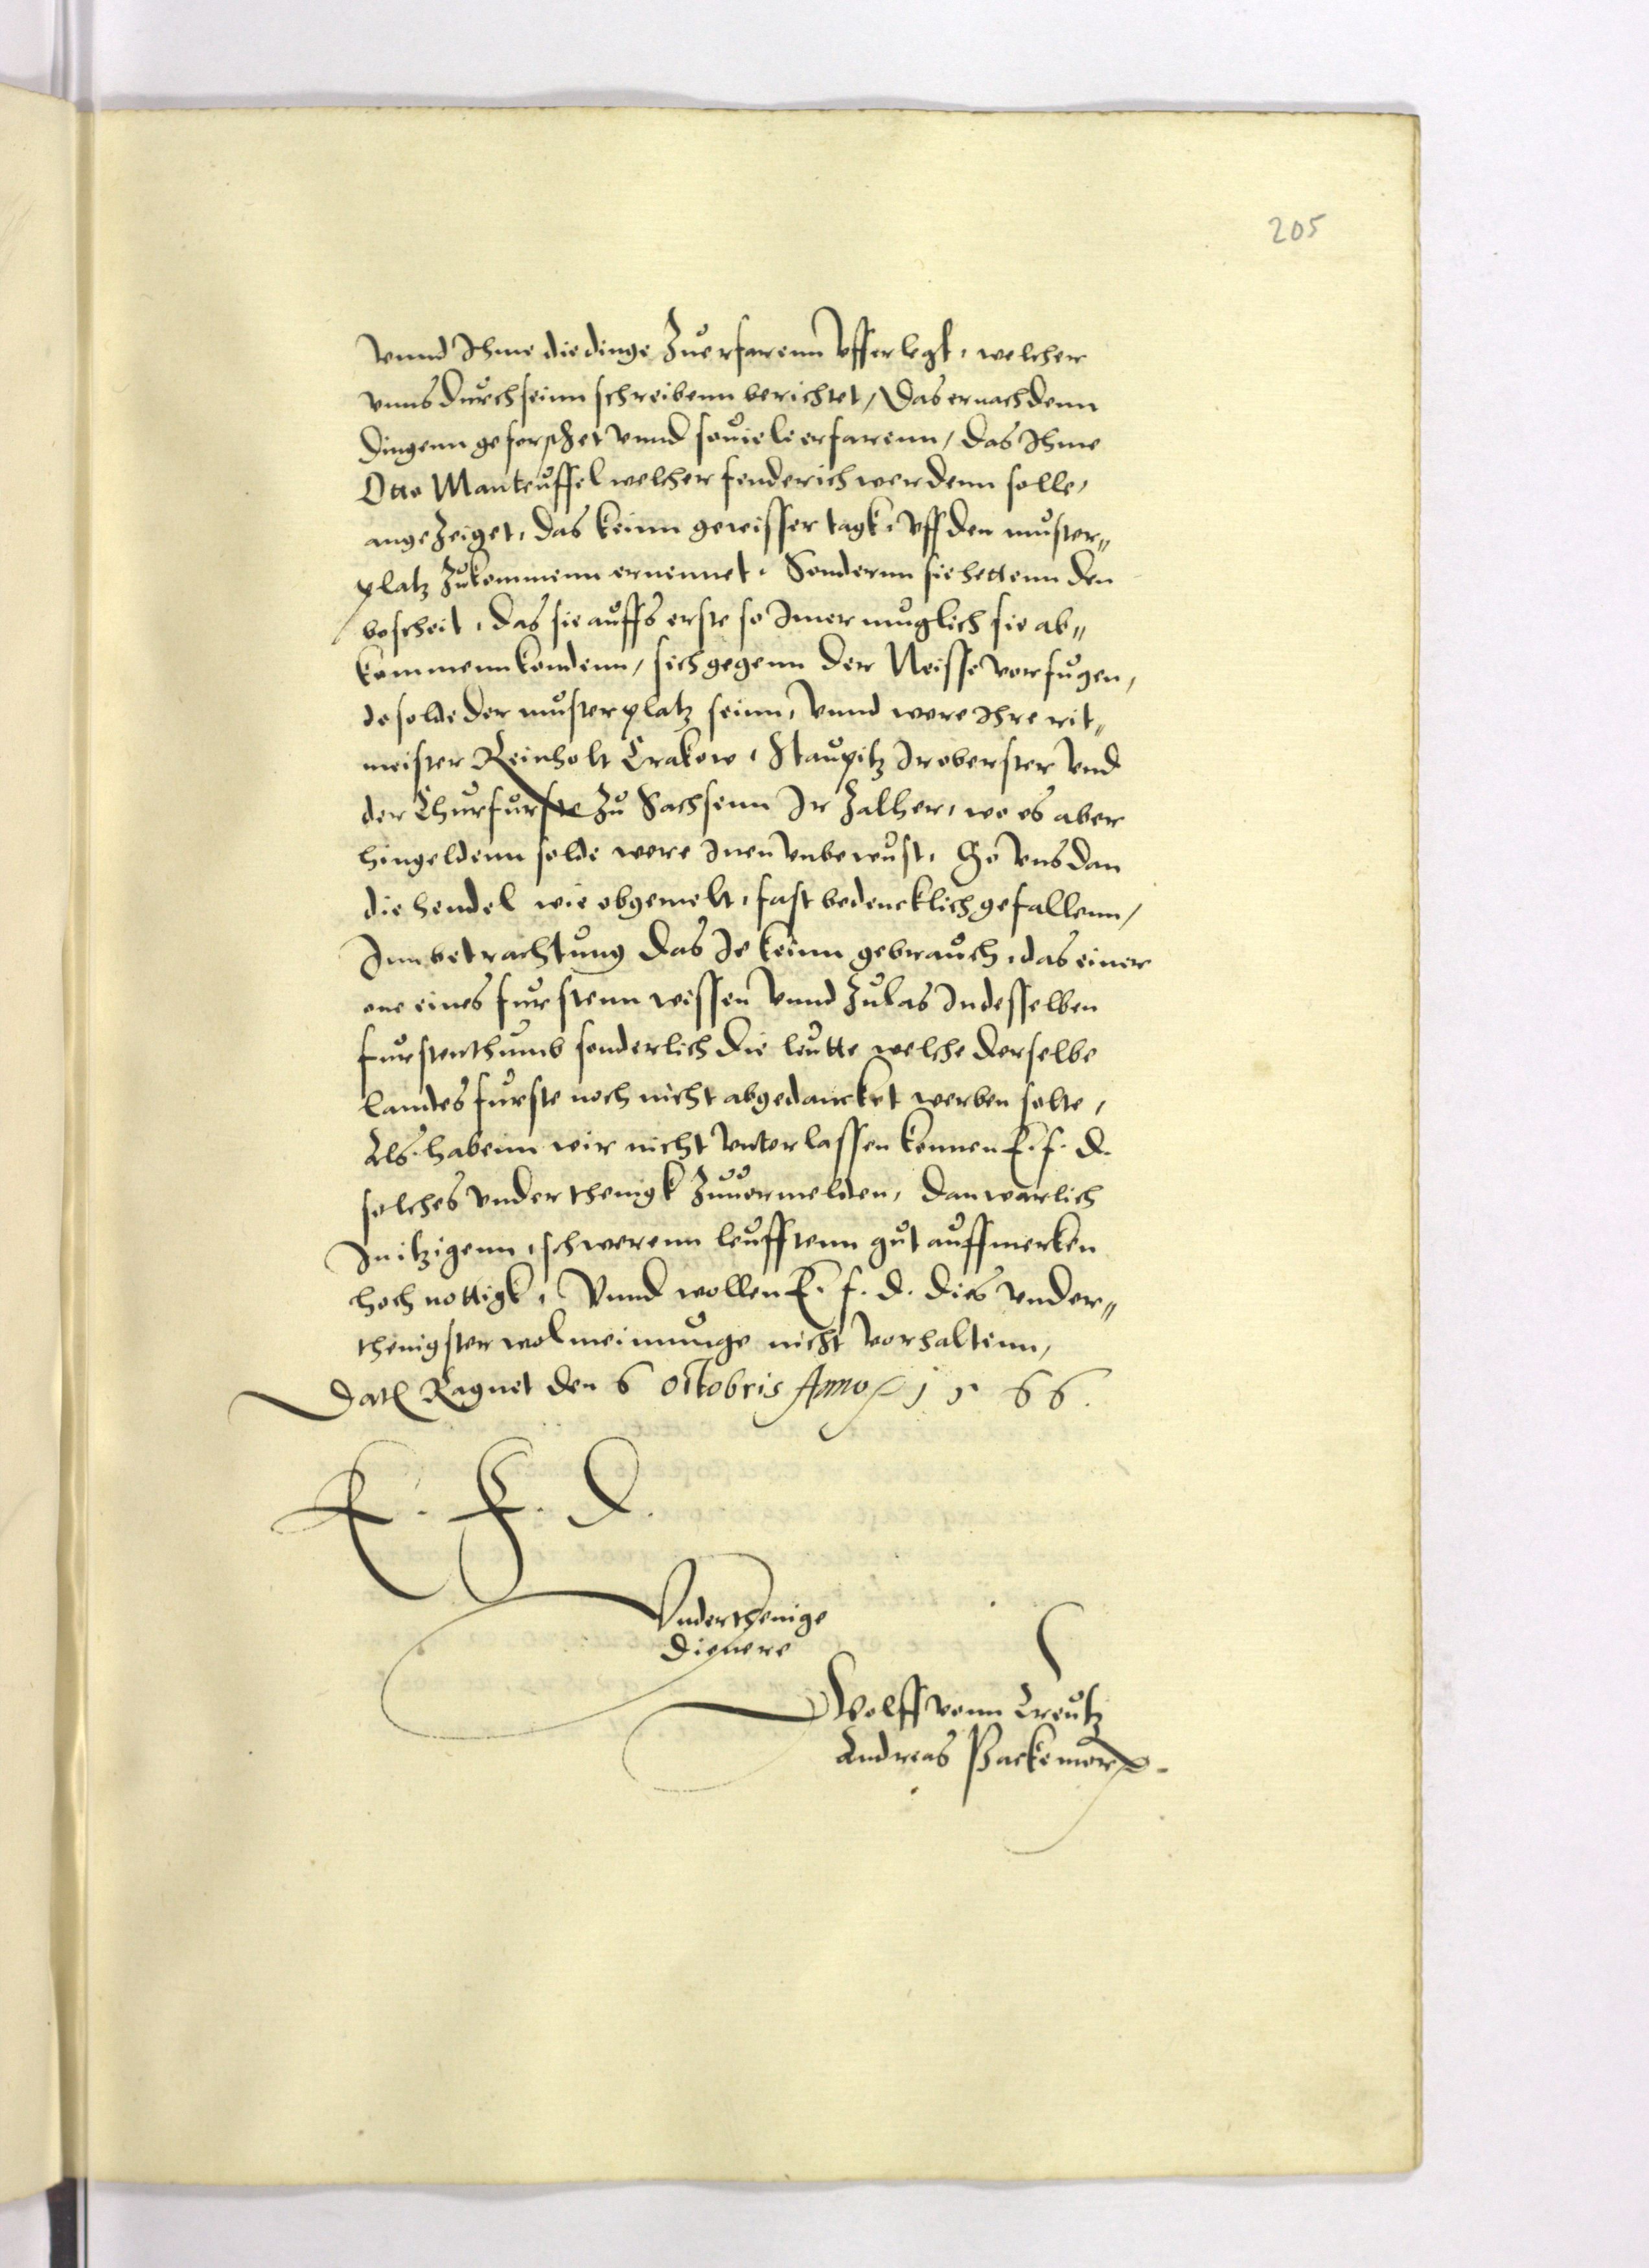 205
Vnnd Ihme die dinge Zuerfarenn Vfferlegt, welcher
vnns durch seinn schreibenn berichtet, Das er nach denn
Dingenn geforschet Vnnd souiele erfarenn, das Ihme
Otto Manteuffel welcher fenderich werdenn solle,
angeZeiget, das keinn gewisser tagk, Vff den muster„
platz Zukommenn ernennet, Sondernn sie hettenn den
bescheit, das sie auffs erste so Imer muglich sie ab„
kommenn kondenn, sich gegenn der Neisse vorfugen,
do solde der musterplatz seinn, Vnnd were Ihre rit„
meister Reinholt Crakow, Staupitz Ir oberster Vnd
der Churfurste Zu Sachsenn Ir Zalher, wo es aber
hingeldenn solde were Inen Vnbewust, So Vns dan
die hendel wie obgemelt, fast bedencklich gefallenn,
Inn betrachtung das Je keinn gebrauch, das einer
one eines furstenn wissen Vnnd Zulas In desselben
furstenthumb sonderlich die leutte welche derselbe
landes furste noch nicht abgedancket werben solte,
Als habenn wir nicht Vnterlassen konnen E. f. d.
solches vnderthenigk Zuuormelden, dan warlich
In itzigenn, schwerenn leufftenn gut auffmerken
hoch nottigk, Vnnd wollen E. f. d. dies vnder„
thenigster wolmeinunge nicht vorhaltenn,
Dat Ragnet den 6 octobris Anno 1566.
E. F. D.
Vnderthenige
dienere
Wolff vonn Creutz
Andreas Packemor